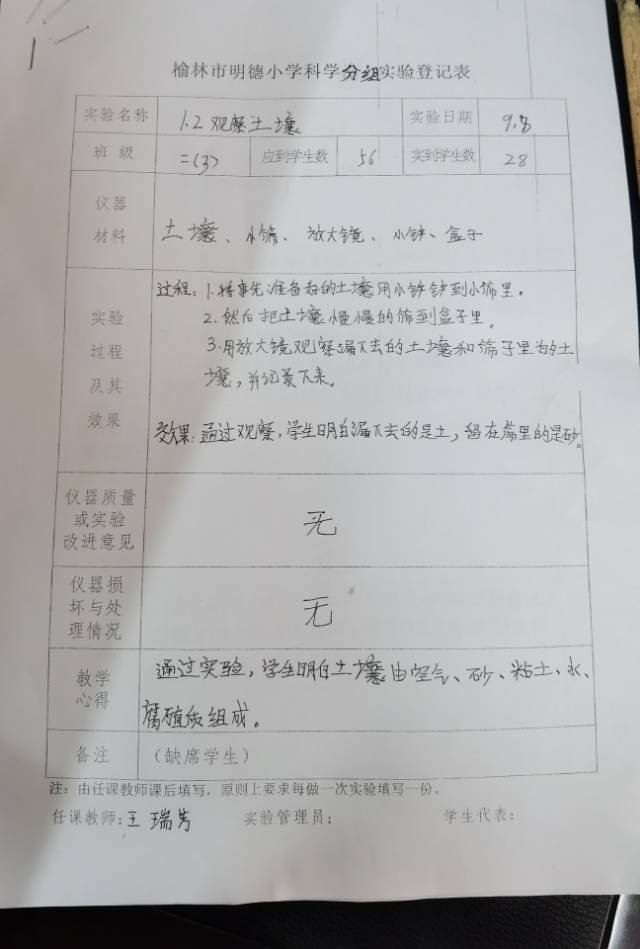 榆林市明德小学科学分组实验登记表
实验名称 1.2 观察土壤 实验日期 9.8
班 级 二(3) 应到学生数 56 实到学生数 28
仪器
材料
土壤、小筛、放大镜、小铲、盒子
实验
过程
及其
效果
过程：1.将事先准备好的土壤用小铲铲到小筛里。
2.然后把土壤慢慢的筛到盒子里。
3.用放大镜观察漏下去的土壤和筛子里的土
壤，并记录下来。
效果：通过观察，学生明白漏下去的是土，留在筛里的是砂。
仪器质量
或实验
改进意见
无
仪器损
坏与处
理情况
无
教学
心得
通过实验，学生明白土壤由空气、砂、粘土、水、
腐殖质组成。
备注 （缺席学生）
注：由任课教师课后填写，原则上要求每做一次实验填写一份。
任课教师：王瑞芳 实验管理员： 学生代表：